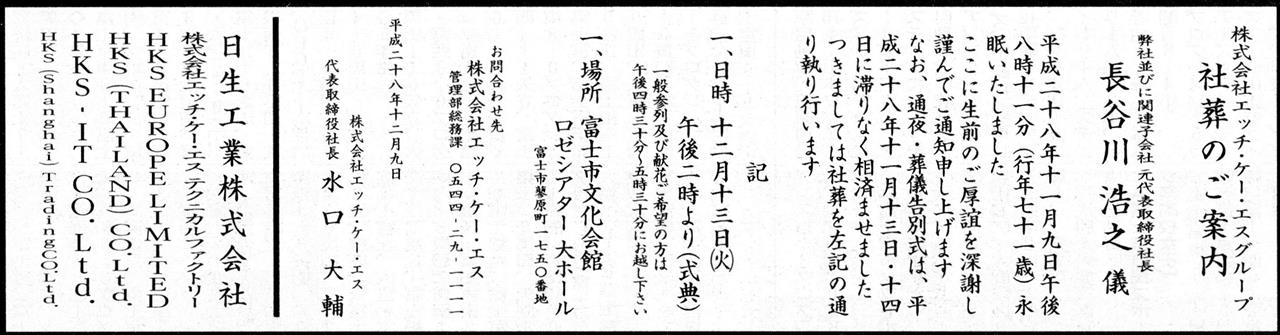 株式会社エッチ・ケー・エスグループ
社葬のご案内
弊社並びに関連子会社 元代表取締役社長
長谷川 浩之 儀
平成二十八年十一月九日午後
八時十一分（行年七十一歳）永
眠いたしました
ここに生前のご厚誼を深謝し
謹んでご通知申し上げます
なお、通夜・葬儀告別式は、平
成二十八年十一月十三日・十四
日に滞りなく相済ませました
つきましては社葬を左記の通
り執り行います
記
一、日時 十二月十三日㈫
午後二時より（式典）
一般参列及び献花ご希望の方は
午後四時三十分〜五時三十分にお越し下さい
一、場所 富士市文化会館
ロゼシアター 大ホール
富士市蓼原町一七五〇番地
お問合わせ先
株式会社エッチ・ケー・エス
管理部総務課 〇五四四-二九-一一一一
平成二十八年十二月九日
株式会社エッチ・ケー・エス
代表取締役社長 水口 大輔
日生工業株式会社
株式会社エッチ・ケー・エス テクニカルファクトリー
HKS EUROPE LIMITED
HKS (THAILAND) CO. Ltd.
HKS-IT CO. Ltd.
HKS (Shanghai) Trading CO. Ltd.